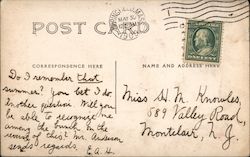 POST CARD
MAY 30
CORRESPONDENCE HERE
NAME AND ADDRESS HERE
Do I remember that
summer? You bet I do.
Another question. Will you
be able to recognize me
among the bunch in the
Mr. Anderson
sends regards.
E.A.H.
Miss H. M. Knowles
589 Valley Road,
Montclair, N. J.